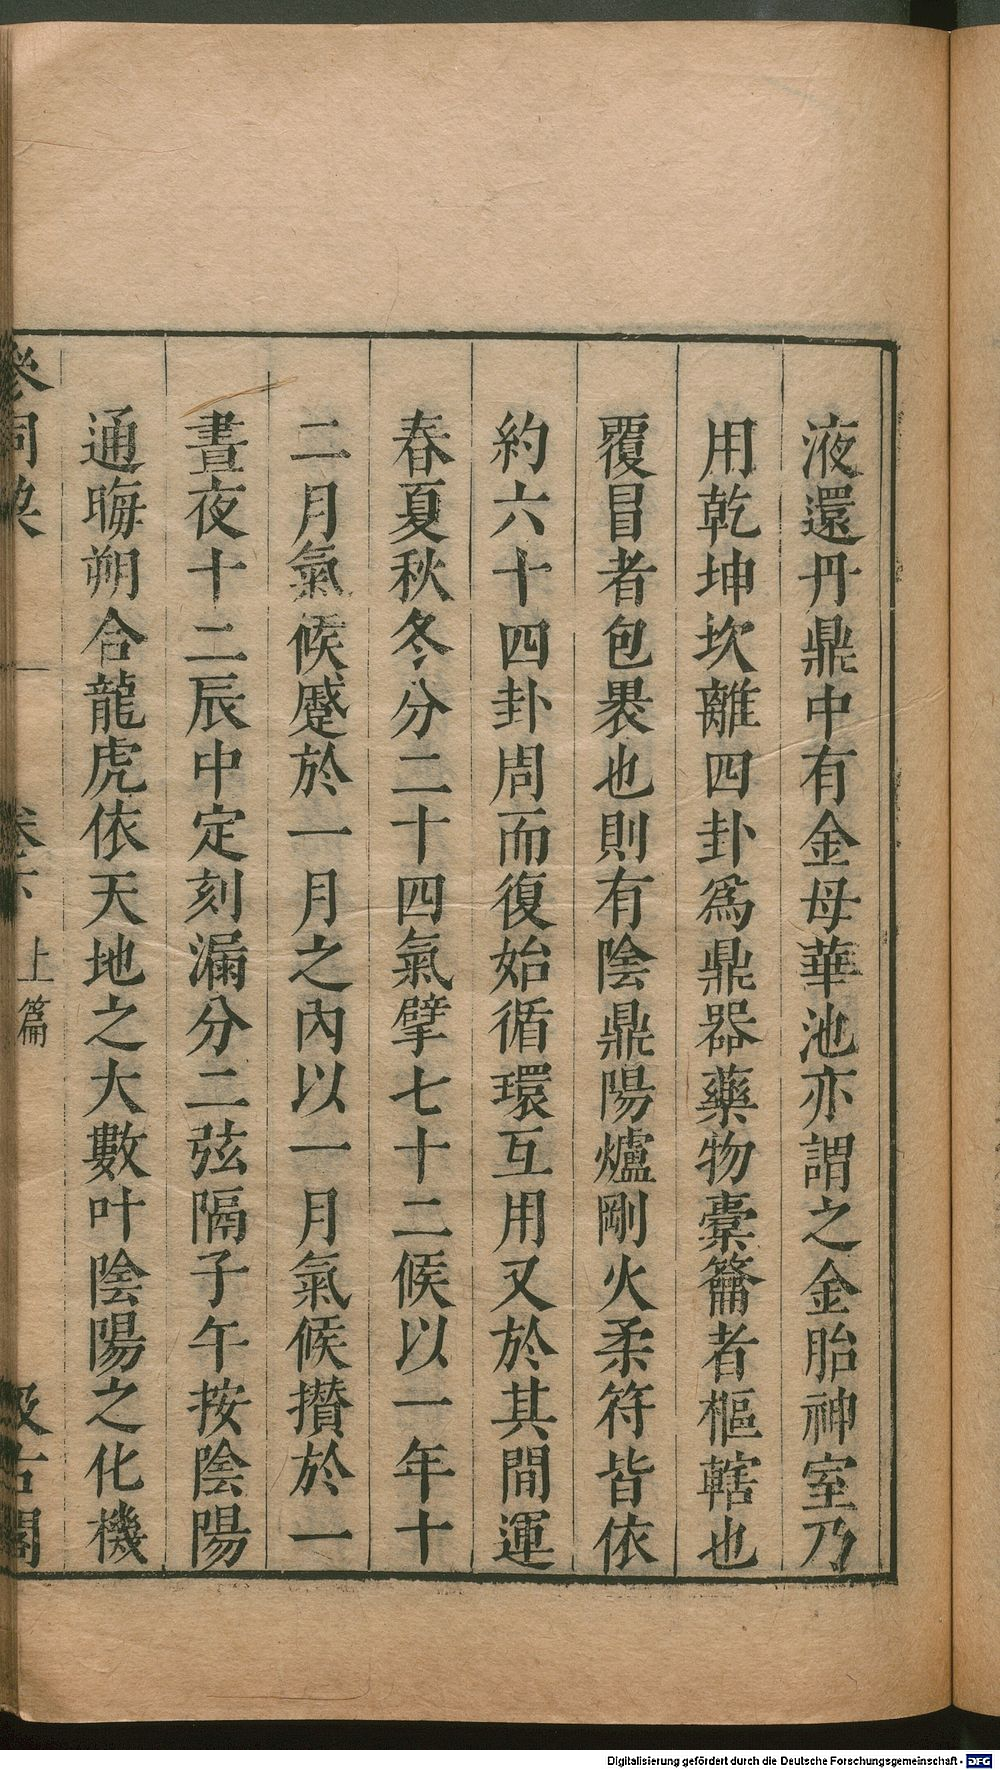 液還丹鼎中有金母華池亦謂之金胎神室乃
用乾坤坎離四卦爲鼎器藥物槖籥者樞轄也
覆冒者包褁也則有陰鼎陽爐剛火柔符皆依
約六十四卦周而復始循環互用又於其間運
春夏秋冬分二十四氣擘七十二候以一年十
二月氣候蹙於一月之內以一月氣候攅於一
晝夜十二辰中定刻漏分二弦隔子午按陰陽
通晦朔合龍虎依天地之大數叶陰陽之化機
參同契 一 卷六 上篇 汲古閣
Digitalisierung gefördert durch die Deutsche Forschungsgemeinschaft - DFG